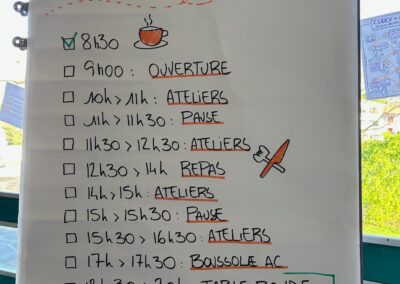 8h30
9h00 : OUVERTURE
10h > 11h : ATELIERS
11h > 11h30 : PAUSE
11h30 > 12h30 : ATELIERS
12h30 > 14h REPAS
14h > 15h : ATELIERS
15h > 15h30 : PAUSE
15h30 > 16h30 : ATELIERS
17h > 17h30 : BOUSSOLE AC